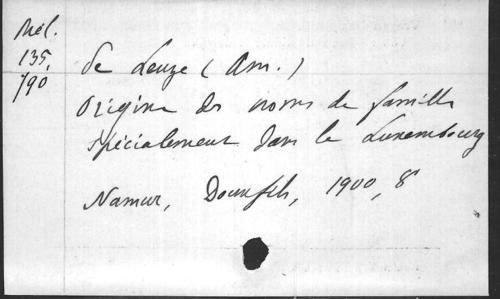 Mél.
135,
790
de Leuze (Am.)
Origine des noms de famille
spécialement dans le Luxembourg
Namur, Douxfils, 1900, 8°